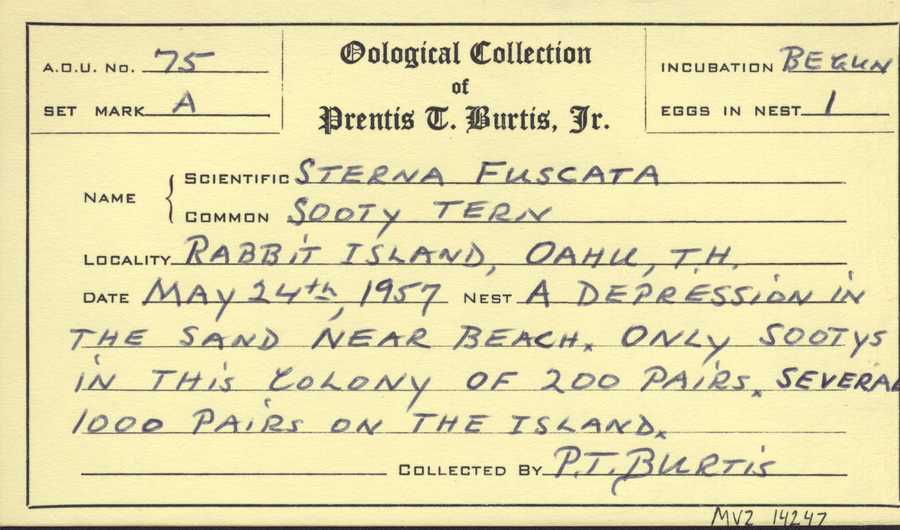 A.O.U. No. 75
Oological Collection
INCUBATION BEGUN
of
SET MARK A
EGGS IN NEST 1
Prentis T. Burtis, Jr.
NAME
SCIENTIFIC STERNA FUSCATA
COMMON SOOTY TERN
LOCALITY RABBIT ISLAND, OAHU, T.H.
DATE MAY 24th, 1957 NEST A DEPRESSION IN
THE SAND NEAR BEACH. ONLY SOOTYS
IN THIS COLONY OF 200 PAIRS. SEVERAL
1000 PAIRS ON THE ISLAND.
COLLECTED BY P.T. BURTIS
MVZ 14247